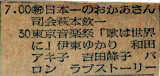 7.00㊗日本一のおかあさん
司会萩本欽一
30東京音楽祭「歌は世界
に」伊東ゆかり 和田
アキ子 吉田鎮子 バ
ロン ラブストーリー